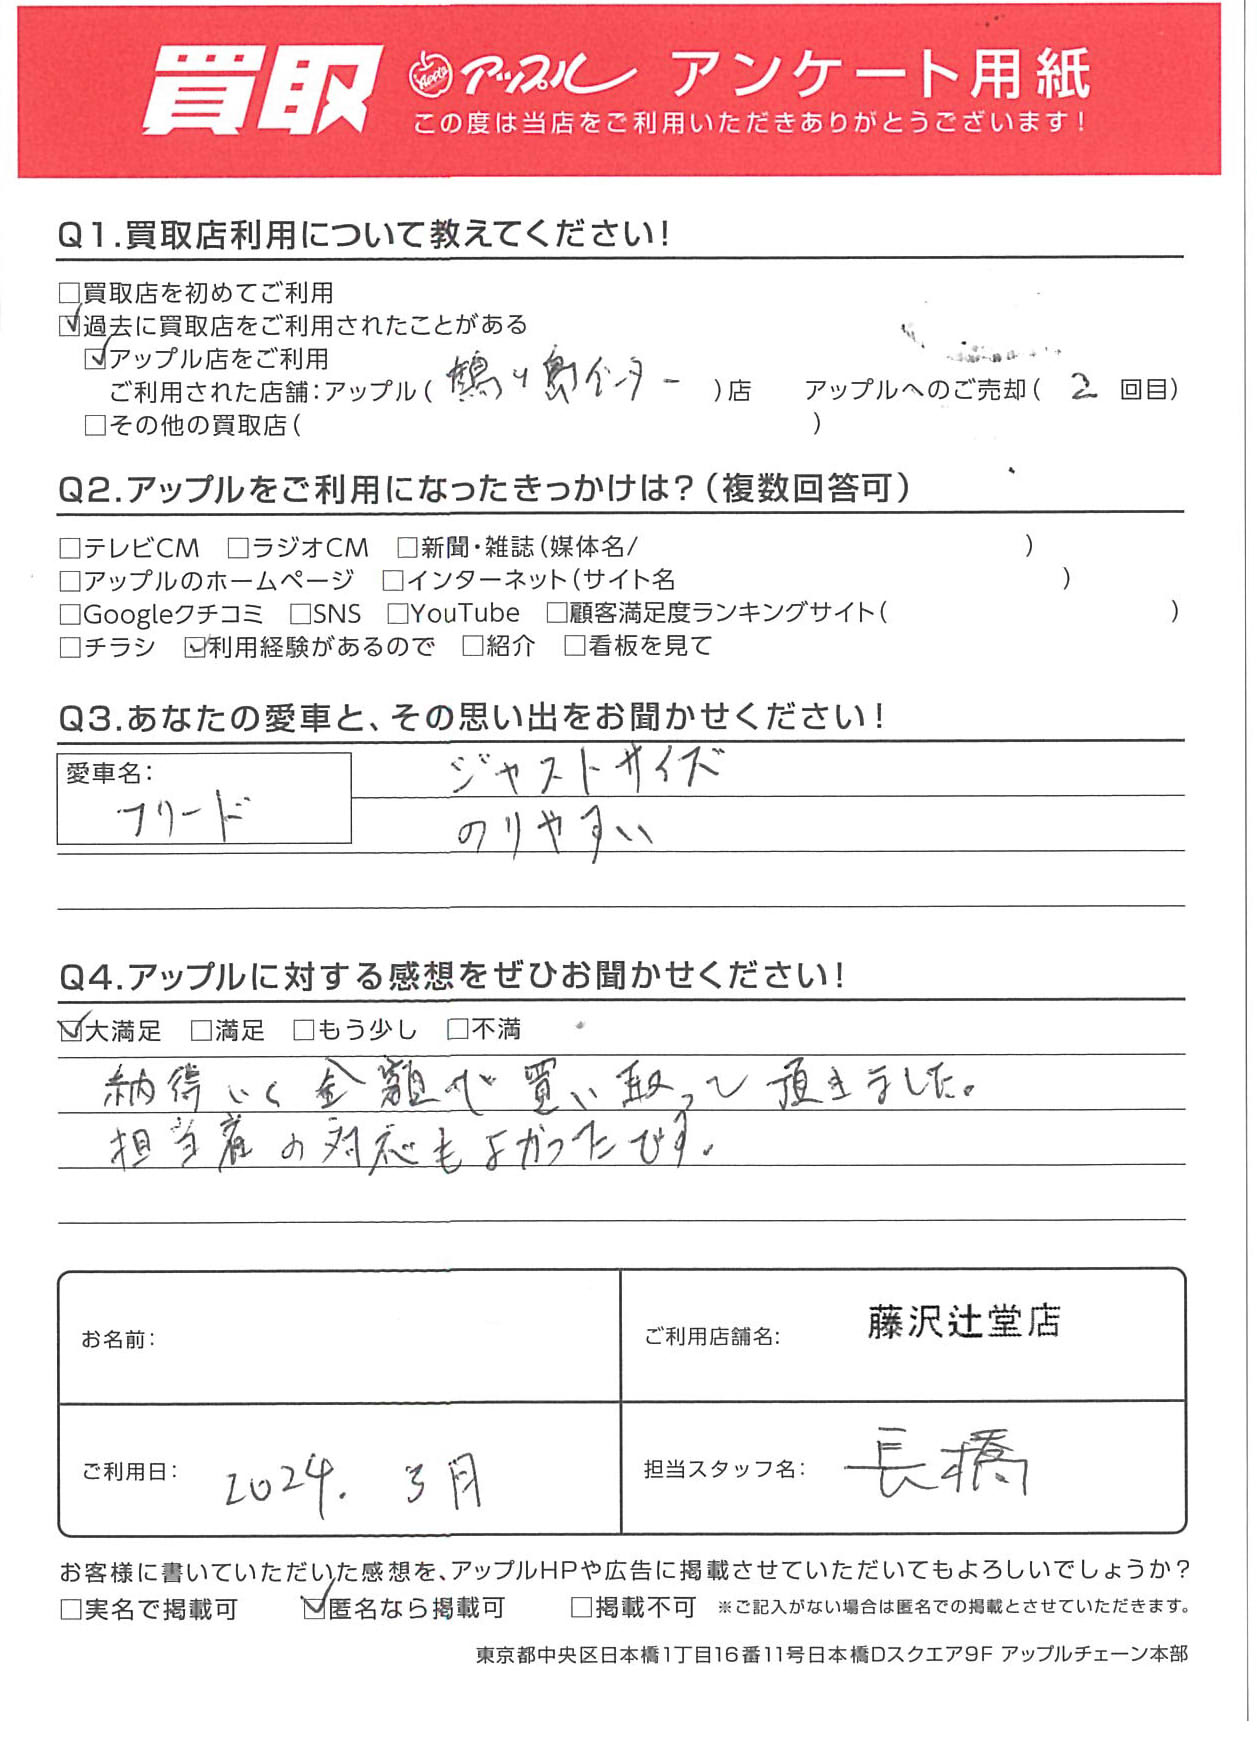 買取 Apple アップル アンケート用紙
この度は当店をご利用いただきありがとうございます!
Q1.買取店利用について教えてください!
□買取店を初めてご利用
☑過去に買取店をご利用されたことがある
☑アップル店をご利用
ご利用された店舗:アップル( 鶴ヶ島インター )店 アップルへのご売却( 2 回目)
□その他の買取店( )
Q2.アップルをご利用になったきっかけは?(複数回答可)
□テレビCM □ラジオCM □新聞・雑誌(媒体名/ )
□アップルのホームページ □インターネット(サイト名 )
□Googleクチコミ □SNS □YouTube □顧客満足度ランキングサイト( )
□チラシ ☑利用経験があるので □紹介 □看板を見て
Q3.あなたの愛車と、その思い出をお聞かせください!
愛車名: フリード
ジャストサイズ
のりやすい
Q4.アップルに対する感想をぜひお聞かせください!
☑大満足 □満足 □もう少し □不満
納得いく金額で買い取って頂きました。
担当者の対応もよかったです。
お名前: ご利用店舗名: 藤沢辻堂店
ご利用日: 2024. 3月 担当スタッフ名: 長橋
お客様に書いていただいた感想を、アップルHPや広告に掲載させていただいてもよろしいでしょうか?
□実名で掲載可 ☑匿名なら掲載可 □掲載不可 ※ご記入がない場合は匿名での掲載とさせていただきます。
東京都中央区日本橋1丁目16番11号日本橋Dスクエア9F アップルチェーン本部